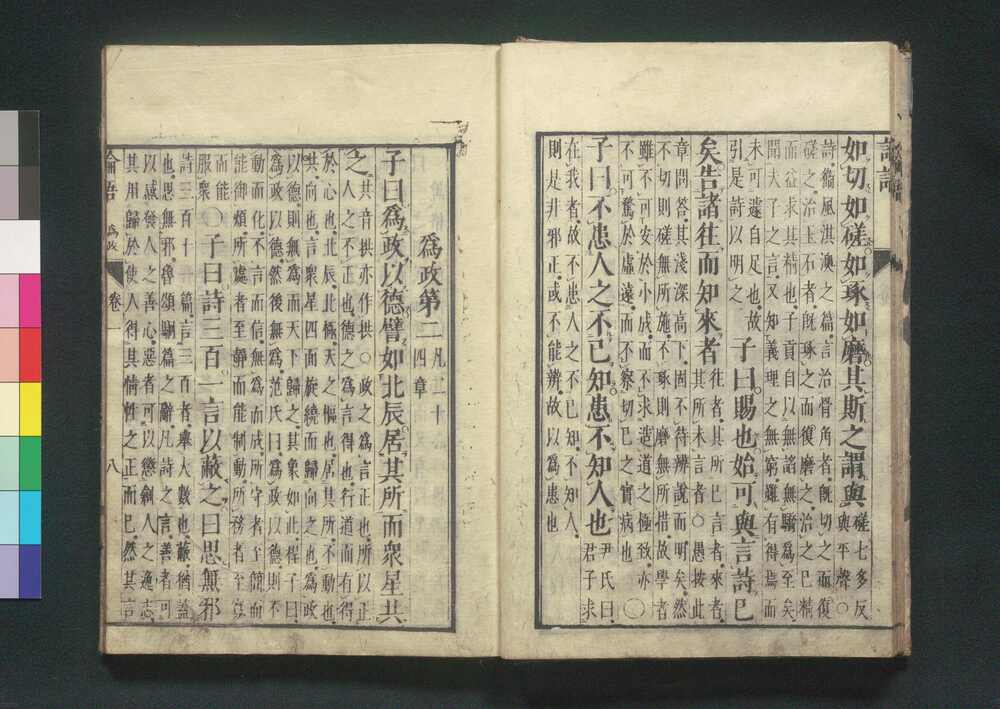 論語
如切如磋如琢如磨其斯之謂與
磋七多反
與平聲○
詩衞風淇澳之篇言治骨角者既切之而復
磋之治玉石者既琢之而復磨之治之已精
而益求其精也子貢自以無諂無驕爲至矣
聞夫子之言又知義理之無窮雖有得焉而
未可遽自足也故
引是詩以明之
子曰賜也始可與言詩已
矣告諸往而知來者
往者其所已言者來者
其所未言者○愚按此
章問答其淺深高下固不待辨說而明矣然
不切則磋無所施不琢則磨無所措故學者
雖不可安於小成而不求造道之極致亦
不可騖於虛遠而不察切己之實病也
○
子曰不患人之不己知患不知人也
尹氏曰
君子求
在我者故不患人之不己知不知人
則是非邪正或不能辨故以爲患也
爲政第二
凡二十
四章
子曰爲政以德譬如北辰居其所而衆星共
之
共音拱亦作拱○政之爲言正也所以正
人之不正也德之爲言得也行道而有得
於心也北辰北極天之樞也居其所不動也
共向也言衆星四面旋繞而歸向之也爲政
以德則無爲而天下歸之其象如此程子曰
爲政以德然後無爲范氏曰爲政以德則不
動而化不言而信無爲而成所守者至簡而
能御煩所處者至靜而能制動所務者至寡
而能
服衆
○子曰詩三百一言以蔽之曰思無邪
詩三百十一篇言三百者舉大數也蔽猶蓋
也思無邪魯頌駉篇之辭凡詩之言善者可
以感發人之善心惡者可以懲創人之逸志
其用歸於使人得其情性之正而已然其言
論語 爲政 卷一 八